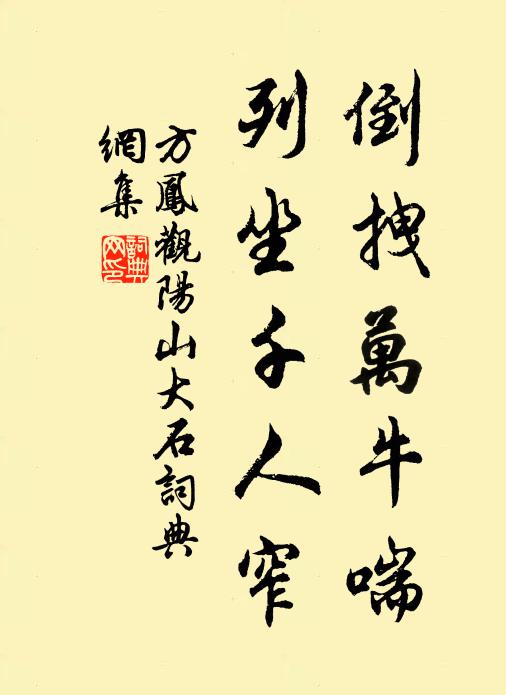 倒拽萬牛喘
列坐千人窄
方鳳觀陽山大石詞典
網集
詞典
网印